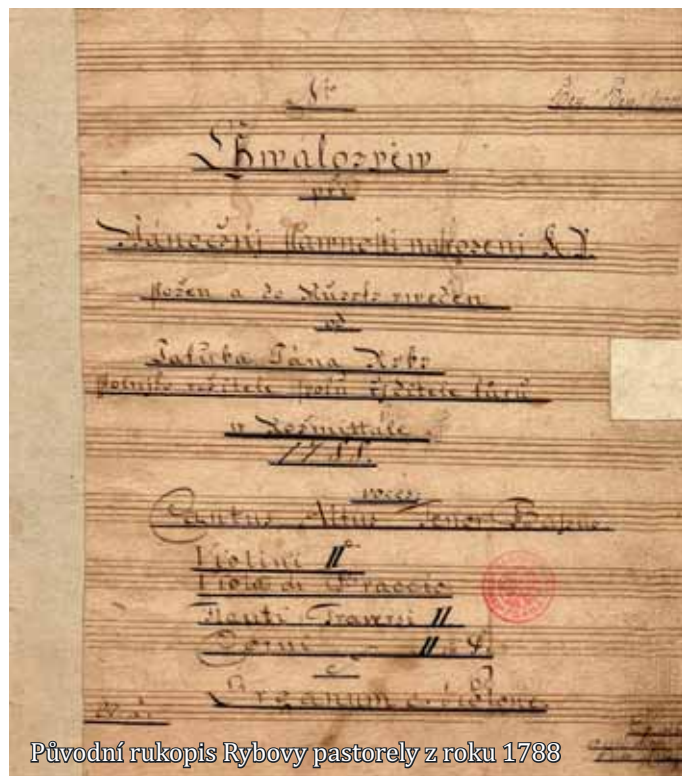 Chwálozpěw
při
Wánočnj slawnosti narozenj K. P.
složen a do Músyky uweden
od
Jakuba Jána Ryby
sskolnjho učitele spolu řjditele kůru
w Rožmittále
1788.
voces:
Cantus Altus Tenor Basso.
Violini II
Viola di Braccio
Flauti Traversi II
Corni II
e
Organum e Violone
Původní rukopis Rybovy pastorely z roku 1788